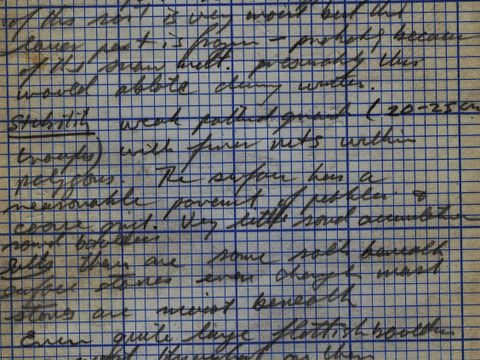 of the soil is very moist but the
lower part is frozen - probably because
of the snow melt. presumably this
would ablate during winter.
Stability weak patterned ground (20-25cm
troughs) with finer nets within
polygons. The surface has a
reasonable pavement of pebbles &
coarse grit. Very little sand accumulation
round boulders
Salts there are some salts beneath
surface stones even though most
stones are moist beneath
Even quite large flattish boulders